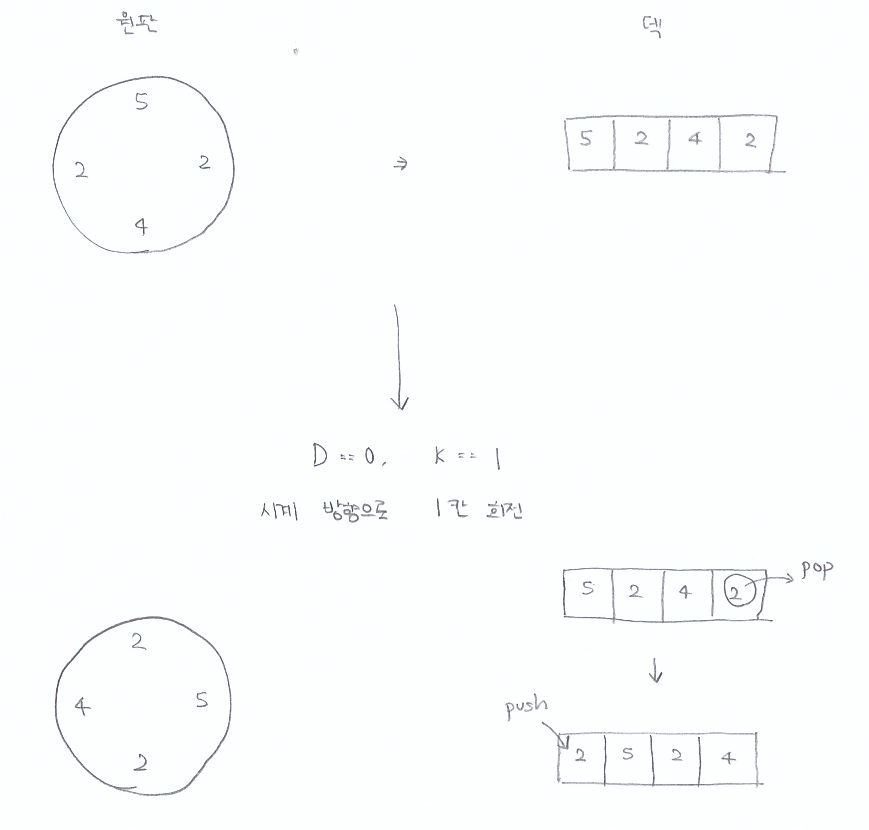 원판 덱
5
2 2
4
⇒
5 2 4 2
D == 0, K == 1
시계 방향으로 1칸 회전
5 2 4 2 pop
2
4 5
2
push
2 5 2 4